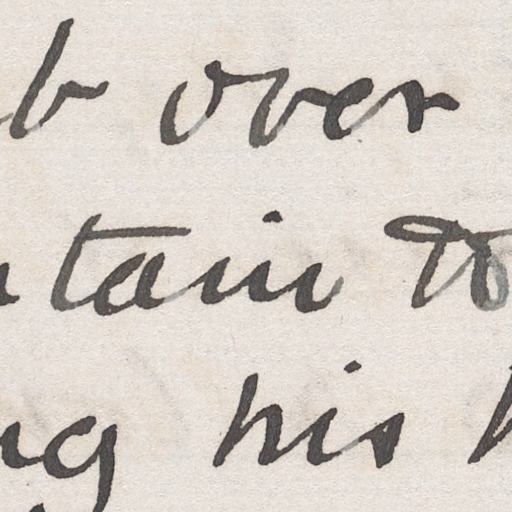 b over
ntain to
ng his h